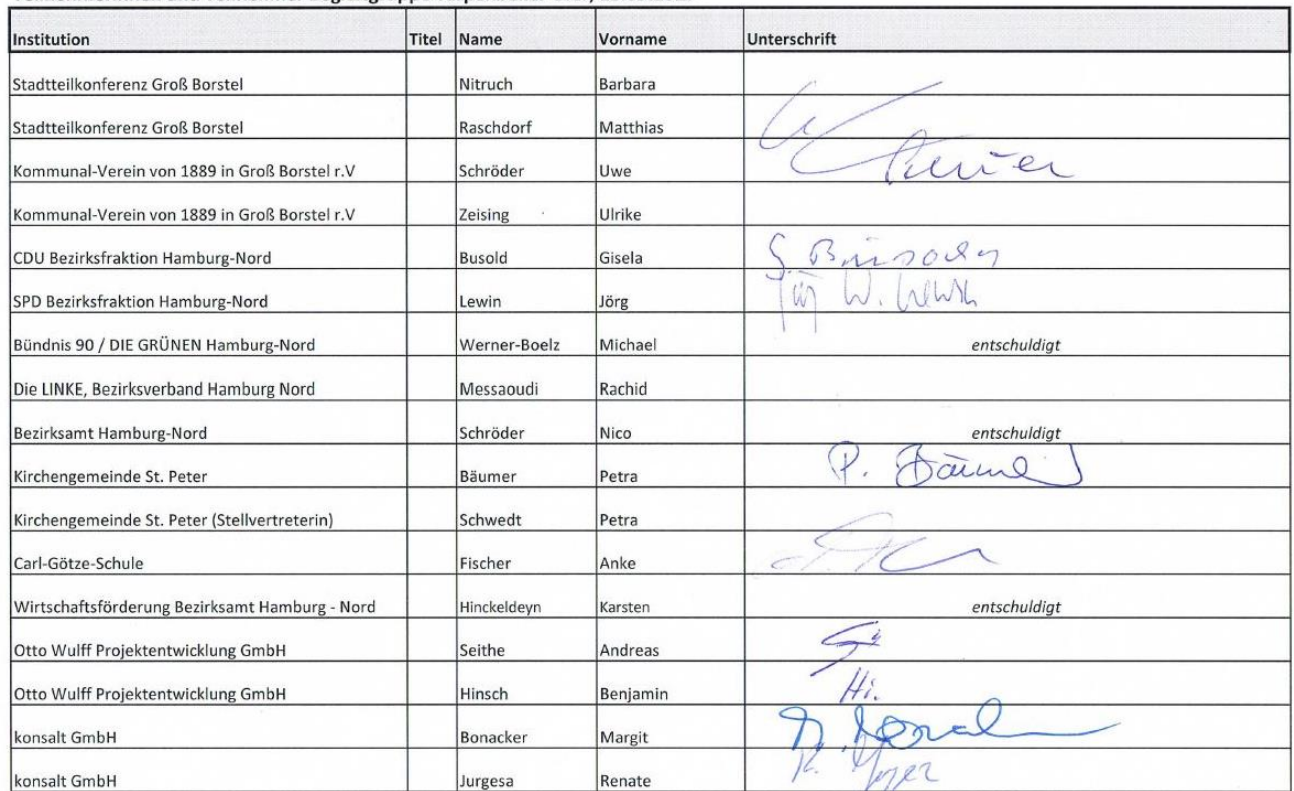 Institution Titel Name Vorname Unterschrift
Stadtteilkonferenz Groß Borstel Nitruch Barbara
Stadtteilkonferenz Groß Borstel Raschdorf Matthias
Kommunal-Verein von 1889 in Groß Borstel r.V Schröder Uwe
Kommunal-Verein von 1889 in Groß Borstel r.V Zeising Ulrike
CDU Bezirksfraktion Hamburg-Nord Busold Gisela
SPD Bezirksfraktion Hamburg-Nord Lewin Jörg
Bündnis 90 / DIE GRÜNEN Hamburg-Nord Werner-Boelz Michael entschuldigt
Die LINKE, Bezirksverband Hamburg Nord Messaoudi Rachid
Bezirksamt Hamburg-Nord Schröder Nico entschuldigt
Kirchengemeinde St. Peter Bäumer Petra P. Bäumer
Kirchengemeinde St. Peter (Stellvertreterin) Schwedt Petra
Carl-Götze-Schule Fischer Anke
Wirtschaftsförderung Bezirksamt Hamburg - Nord Hinckeldeyn Karsten entschuldigt
Otto Wulff Projektentwicklung GmbH Seithe Andreas
Otto Wulff Projektentwicklung GmbH Hinsch Benjamin Hi.
konsalt GmbH Bonacker Margit
konsalt GmbH Jurgesa Renate